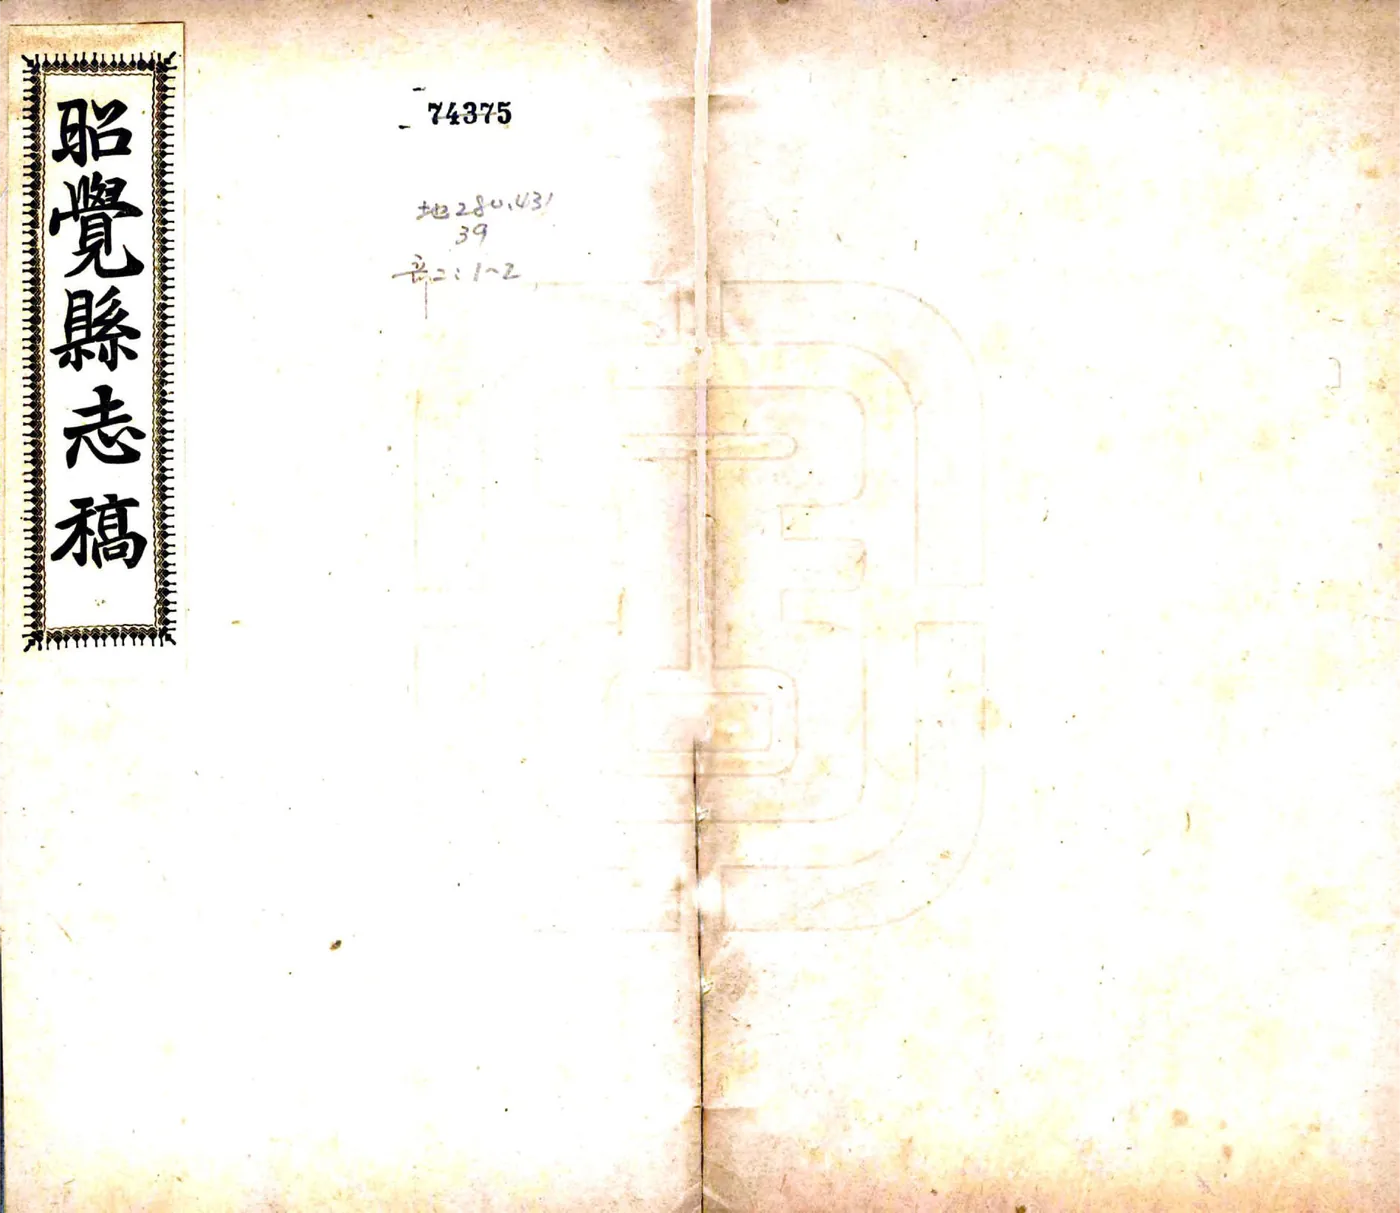 昭覺縣志稿
74375
地280.431
39
部二:1~2